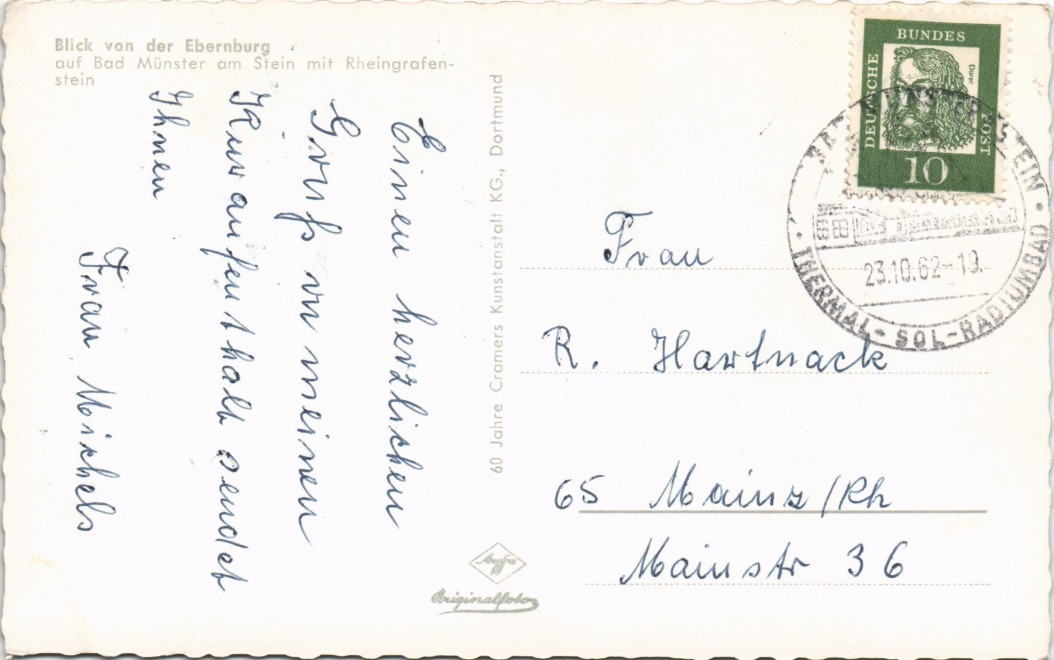 Blick von der Ebernburg
auf Bad Münster am Stein mit Rheingrafen-
stein
Einen herzlichen
Gruß von meinen
Kuraufenthalt sendet
Ihnen
Frau Michels
60 Jahre Cramers Kunstanstalt KG., Dortmund
Agfa
Originalfoto
DEUTSCHE
BUNDES
POST
Dürer
10
BAD MÜNSTER A STEIN
23.10.62-19.
THERMAL-SOL-RADIUMBAD
Frau
R. Hartnack
65 Mainz/Rh
Mainstr 36